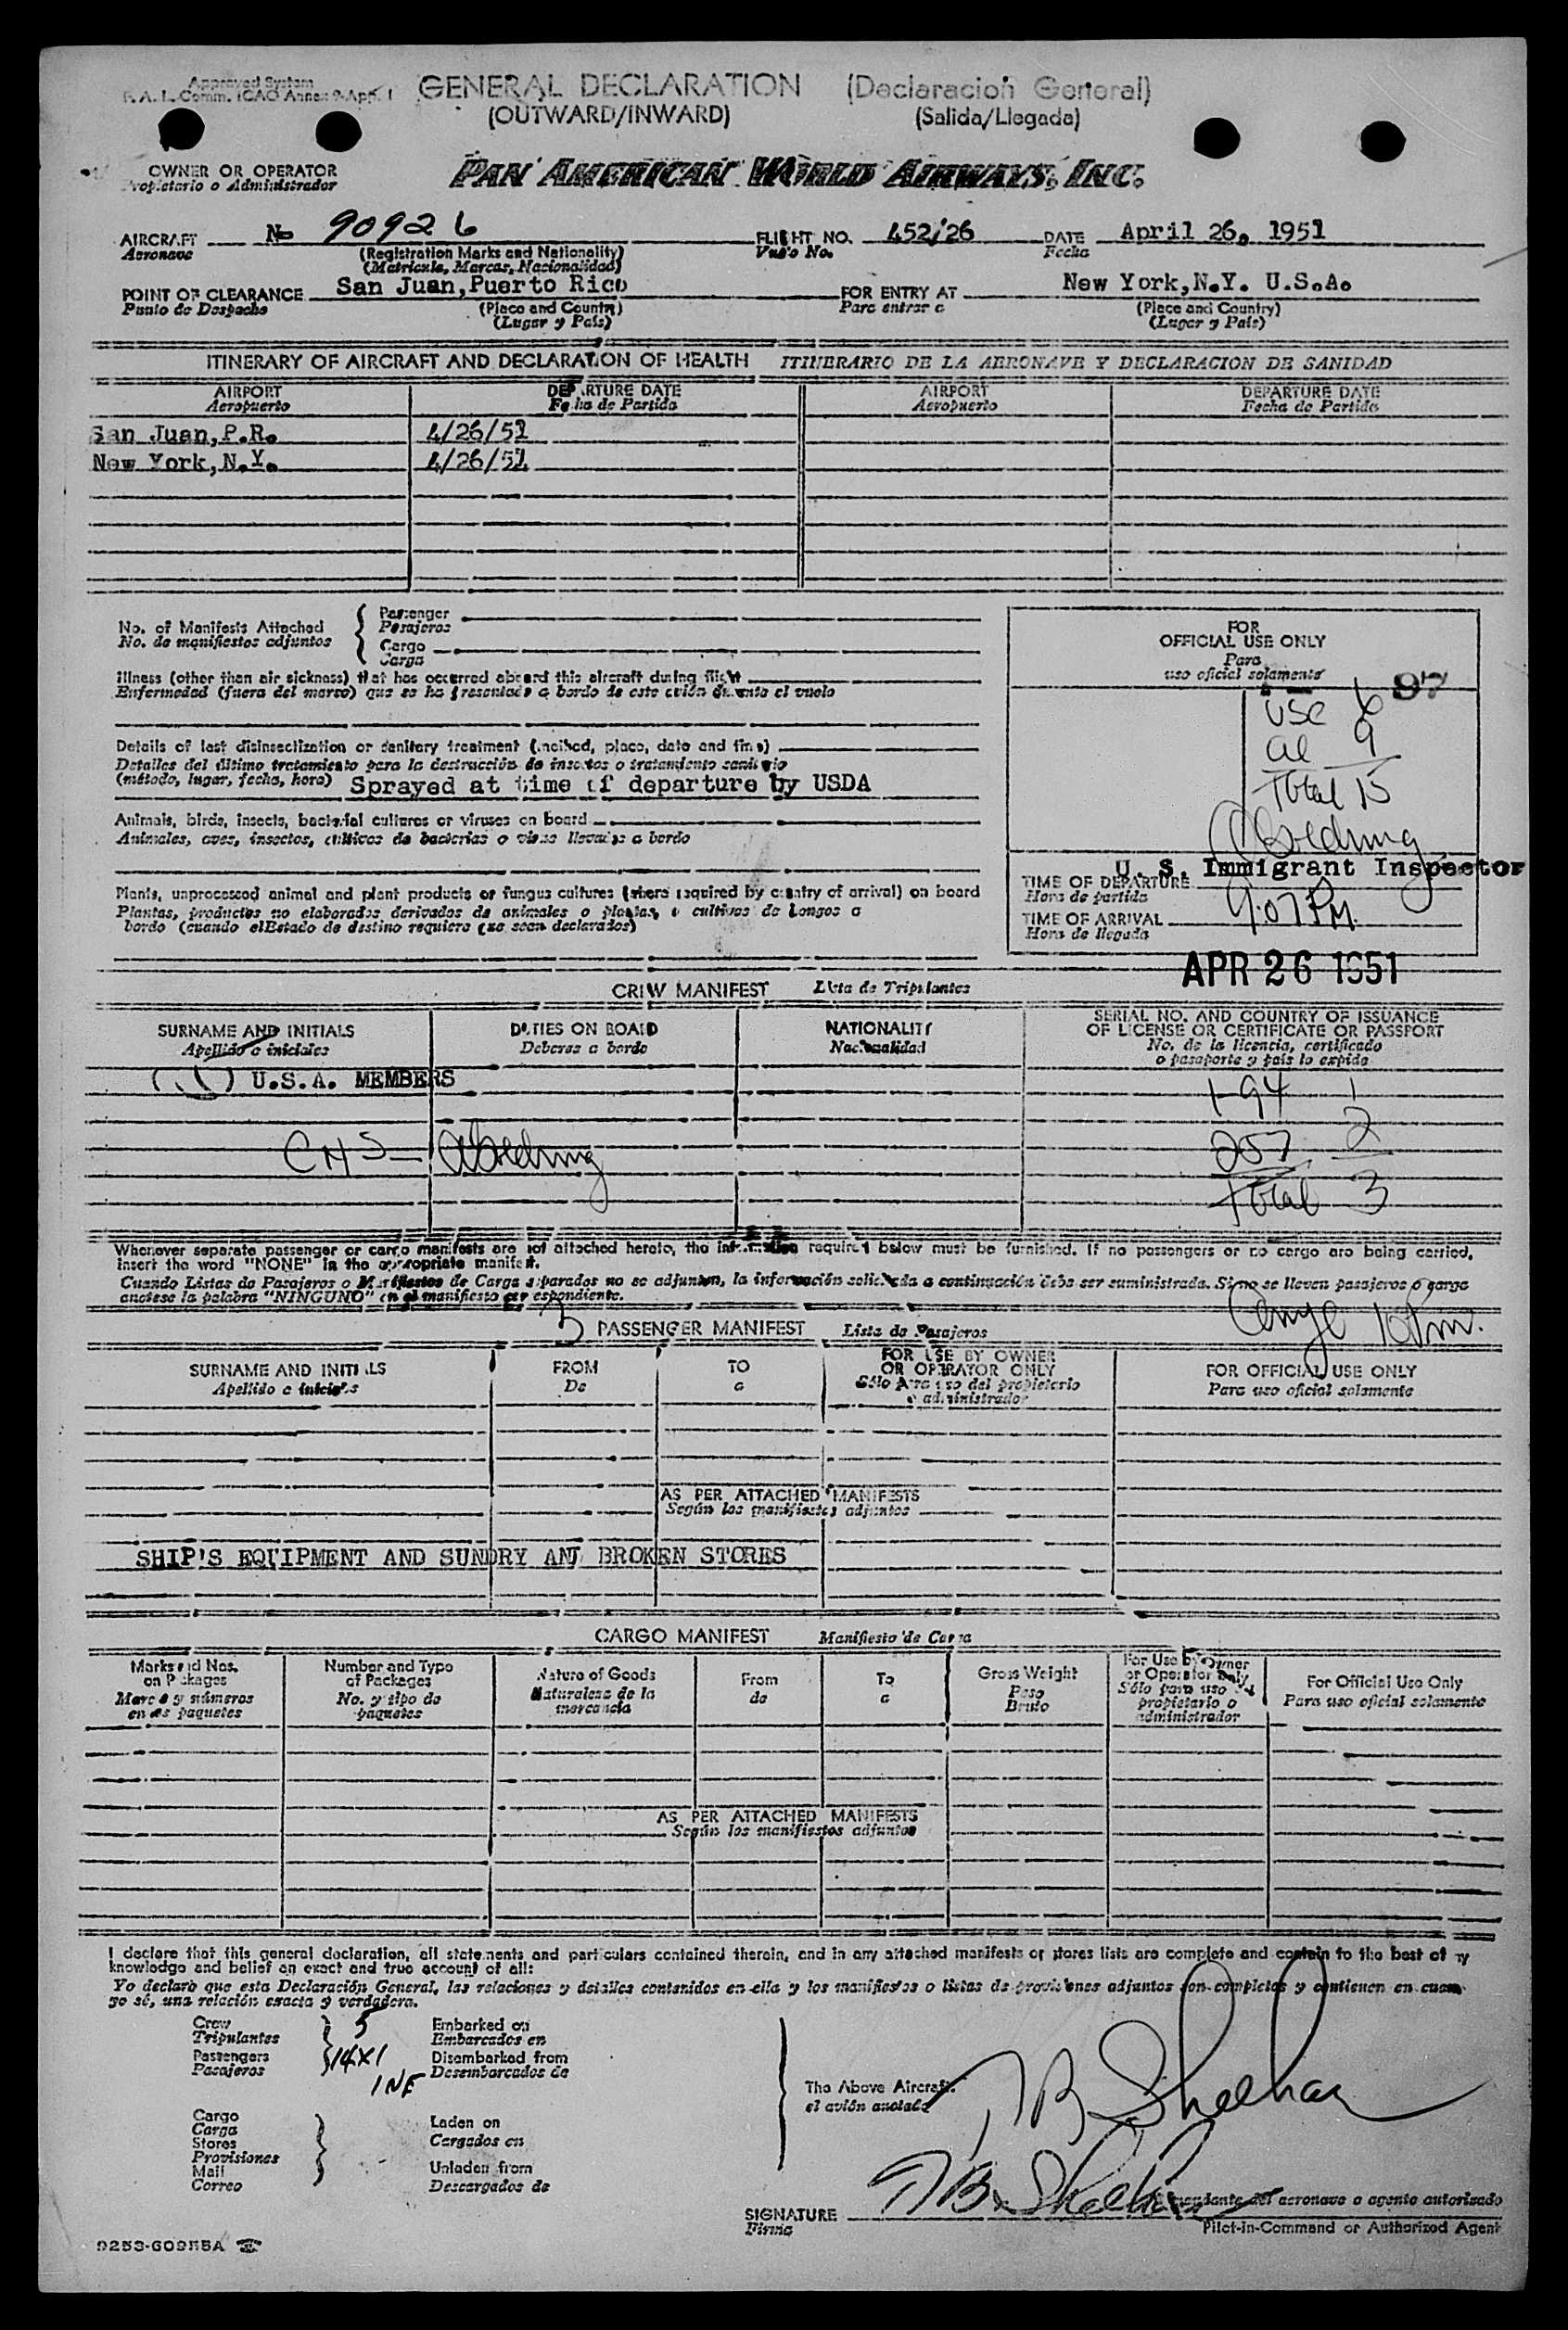 Approved System
F. A. L. Comm. ICAO Annex 9-App. 1
GENERAL DECLARATION (Declaracion General)
(OUTWARD/INWARD) (Salida/Llegada)
OWNER OR OPERATOR
Propietario o Administrador
PAN AMERICAN WORLD AIRWAYS, INC.
AIRCRAFT No 90926 FLIGHT NO. 452/26 DATE April 26, 1951
Aeronave (Registration Marks and Nationality) Vuelo No. Fecha
(Matricula, Marcas, Nacionalidad)
POINT OF CLEARANCE San Juan,Puerto Rico FOR ENTRY AT New York,N.Y. U.S.A.
Punto de Despacho (Place and Country) Para entrar a (Place and Country)
(Lugar y País) (Lugar y País)
ITINERARY OF AIRCRAFT AND DECLARATION OF HEALTH ITINERARIO DE LA AERONAVE Y DECLARACION DE SANIDAD
AIRPORT DEPARTURE DATE AIRPORT DEPARTURE DATE
Aeropuerto Fecha de Partida Aeropuerto Fecha de Partida
San Juan,P.R. 4/26/51
New York,N.Y. 4/26/51
No. of Manifests Attached
No. de manifiestos adjuntos
Passenger
Pasajeros
Cargo
Carga
Illness (other than air sickness) that has occurred aboard this aircraft during flight
Enfermedad (fuera del mareo) que se ha presentado a bordo de este avión durante el vuelo
Details of last disinsectization or sanitary treatment (method, place, date and time)
Detalles del último tratamiento para la destrucción de insectos o tratamiento sanitario
(método, lugar, fecha, hora) Sprayed at time of departure by USDA
Animals, birds, insects, bacterial cultures or viruses on board
Animales, aves, insectos, cultivos de bacterias o virus llevados a bordo
Plants, unprocessed animal and plant products or fungus cultures (where required by country of arrival) on board
Plantas, productos no elaborados derivados de animales o plantas, o cultivos de hongos a
bordo (cuando el Estado de destino requiere que sean declarados)
FOR
OFFICIAL USE ONLY
Para
uso oficial solamente
97
USC 6
al 9
Total 15
U. S. Immigrant Inspector
TIME OF DEPARTURE
Hora de partida
TIME OF ARRIVAL 9:07 PM.
Hora de llegada
APR 26 1951
CREW MANIFEST Lista de Tripulantes
SURNAME AND INITIALS DUTIES ON BOARD NATIONALITY SERIAL NO. AND COUNTRY OF ISSUANCE
OF LICENSE OR CERTIFICATE OR PASSPORT
Apellido e iniciales Deberes a bordo Nacionalidad No. de la licencia, certificado
o pasaporte y país lo expide
U.S.A. MEMBERS
1-94 1
257 2
Total 3
Whenever separate passenger or cargo manifests are not attached hereto, the information required below must be furnished. If no passengers or no cargo are being carried,
insert the word "NONE" in the appropriate manifest.
Cuando Listas de Pasajeros o Manifiestos de Carga separados no se adjunten, la información solicitada a continuación debe ser suministrada. Si no se lleven pasajeros o carga
anótese la palabra "NINGUNO" en el manifiesto correspondiente.
3 PASSENGER MANIFEST Lista de Pasajeros
SURNAME AND INITIALS FROM TO FOR USE BY OWNER
OR OPERATOR ONLY FOR OFFICIAL USE ONLY
Apellido e iniciales De a Sólo para uso del propietario
o administrador Para uso oficial solamente
AS PER ATTACHED MANIFESTS
Según los manifiestos adjuntos
SHIP'S EQUIPMENT AND SUNDRY AND BROKEN STORES
CARGO MANIFEST Manifiesto de Carga
Marks and Nos.
on Packages
Marcas y números
en los paquetes
Number and Type
of Packages
No. y tipo de
paquetes
Nature of Goods
Naturaleza de la
mercancía
From
de
To
a
Gross Weight
Peso
Bruto
For Use by Owner
or Operator Only
Sólo para uso del
propietario o
administrador
For Official Use Only
Para uso oficial solamente
AS PER ATTACHED MANIFESTS
Según los manifiestos adjuntos
I declare that this general declaration, all statements and particulars contained therein, and in any attached manifests or stores lists are complete and contain to the best of my
knowledge and belief an exact and true account of all:
Yo declaro que esta Declaración General, las relaciones y detalles contenidos en ella y los manifiestos o listas de provisiones adjuntos son completos y contienen en cuanto
yo sé, una relación exacta y verdadera.
Crew 5 Embarked on
Tripulantes Embarcados en
Passengers 14X1 Disembarked from
Pasajeros INF Desembarcados de
The Above Aircraft
el avión anotado
Cargo Laden on
Carga Cargados en
Stores
Provisiones
Mail Unladen from
Correo Descargados de
SIGNATURE
Firma
Comandante del aeronave o agente autorizado
Pilot-in-Command or Authorized Agent